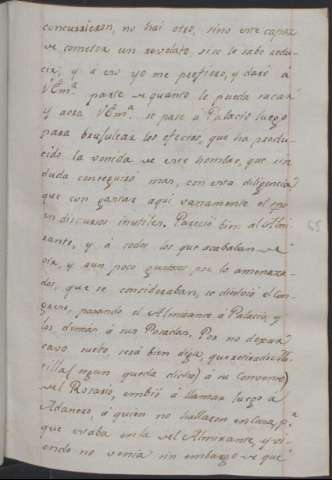 concurrieron, no hai otro, sino este capaz
de cometer un
y a eso yo me prefiero, y daré à
V.Em.ª parte de quanto le pueda sacar
y aora V.Em.ª se pase a Palacio luego
para brujulear los efectos, que ha produ-
cido la venida de este hombre, que sin
duda conseguirá mas, con esta diligencia
que con gastar aqui vanamente el tpo
en discursos inutiles. Pareció bien al Almi-
rante, y à todos los que acababan de
oir, y aun poco gustosos, por lo amenaza-
dos, que se consideraban, se disolvió el con-
greso, pasando el Almirante à Palacio, y
los demás à sus Posadas. Por no dexar
cavo suelto, será bien diga, que retirado
(segun queda dicho) à su Convento
del Rosario, embió à llamar luego a
Adanero, à quien no hallaron en casa, p.r
que estaba en la del Almirante, y vi-
endo no venía sin embargo de que
65